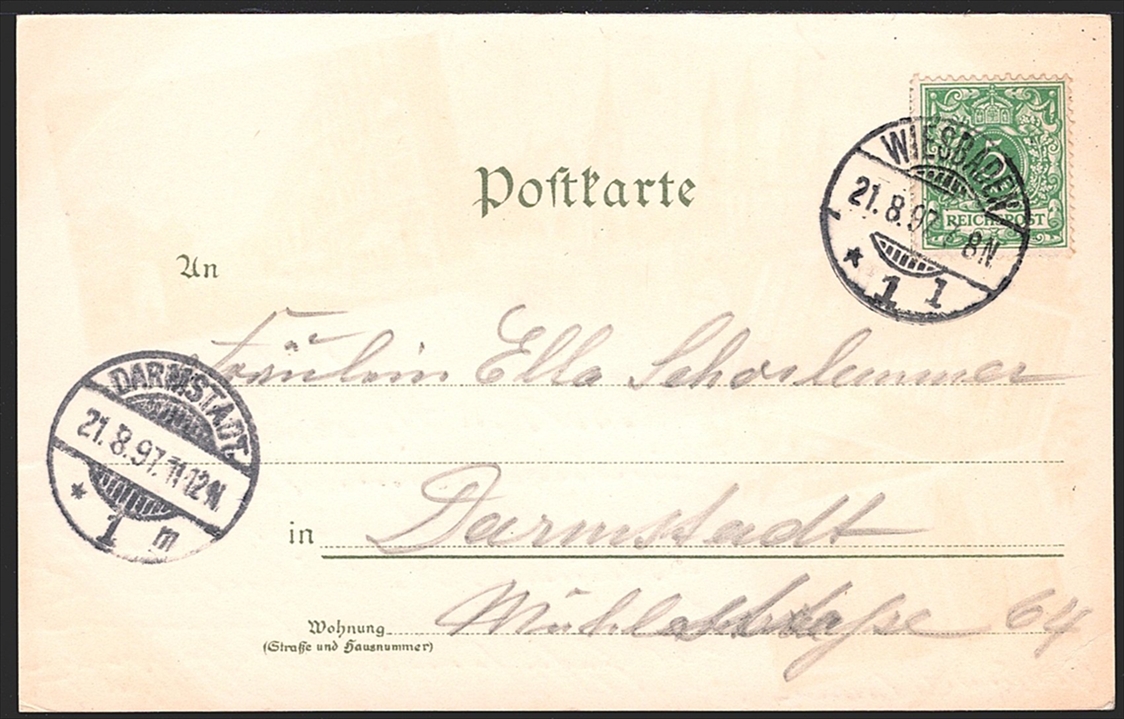 Postkarte
5
REICHSPOST
WIESBADEN
21.8.97. 8N.
* 1 l
An
Fräulein Ella Schorlemmer
DARMSTADT.
21.8.97. 11-12N.
* 1 m
in Darmstadt
Wohnung Mühlstraße 64
(Straße und Hausnummer)